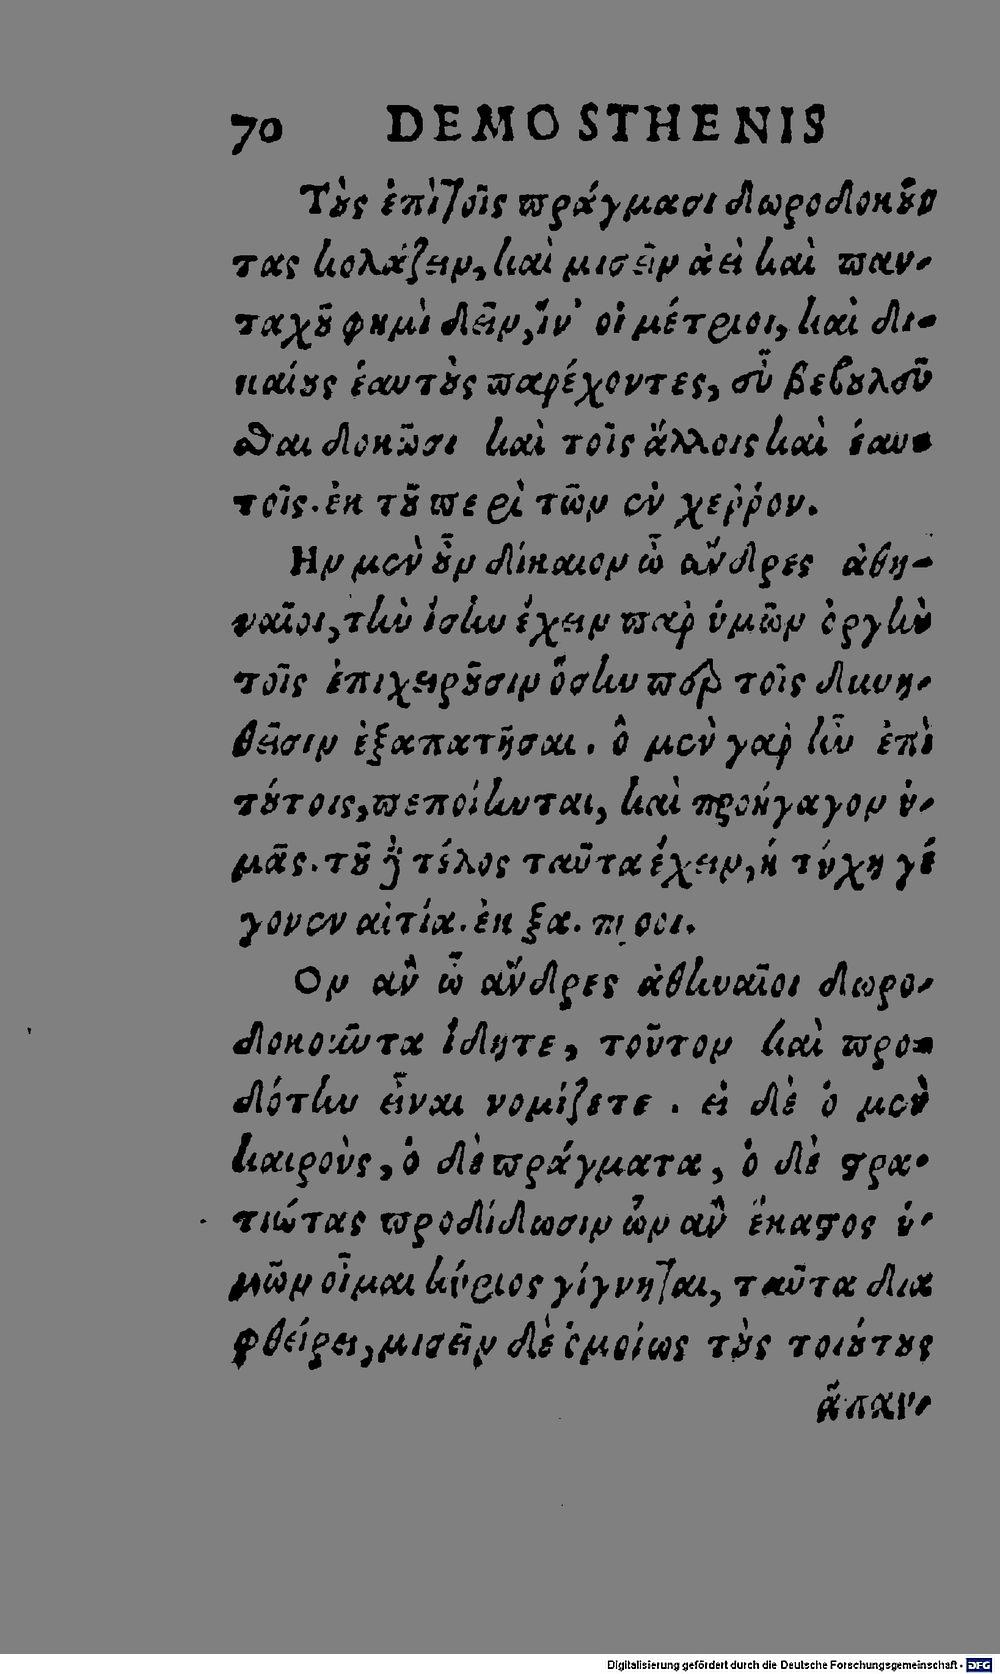 70 DEMOSTHENIS
Τοὺς ἐπὶ τοῖς πράγμασι δωροδοκοῦν
τας κολάζειν, καὶ μισεῖν ἀεὶ καὶ παν-
ταχοῦ φημὶ δεῖν, ἵν' οἱ μέτριοι, καὶ δι-
καίους ἑαυτοὺς παρέχοντες, εὖ βεβουλεῦ
σθαι δοκῶσι καὶ τοῖς ἄλλοις καὶ ἑαυ-
τοῖς. ἐκ τοῦ περὶ τῶν ἐν χερρόν.
Ην μὲν οὖν δίκαιον ὦ ἄνδρες ἀθη-
ναῖοι, τὴν ἴσην ἔχειν παρ ὑμῶν ὀργὴν
τοῖς ἐπιχειροῦσιν ὅσην περ τοῖς δυνη-
θεῖσιν ἐξαπατῆσαι. ὃ μὲν γὰρ ἦν ἐπὶ
τούτοις, πεποίηνται, καὶ προήγαγον ὑ-
μᾶς. τοῦ δὲ τέλος ταῦτα ἔχειν, ἡ τύχη γέ
γονεν αἰτία. ἐκ
Ον ἂν ὦ ἄνδρες ἀθηναῖοι δωρο-
δοκοῦντα ἴδητε, τοῦτον καὶ προ-
δότην εἶναι νομίζετε. εἰ δὲ ὁ μὲν
καιροὺς, ὁ δὲ πράγματα, ὁ δὲ στρα-
τιώτας προδίδωσιν ὧν ἂν ἕκαστος ὑ-
μῶν οἶμαι κύριος γίγνηται, ταῦτα δια
φθείρει, μισεῖν δὲ ὁμοίως τοὺς τοιούτους
ἅπαν-
Digitalisierung gefördert durch die Deutsche Forschungsgemeinschaft - DFG